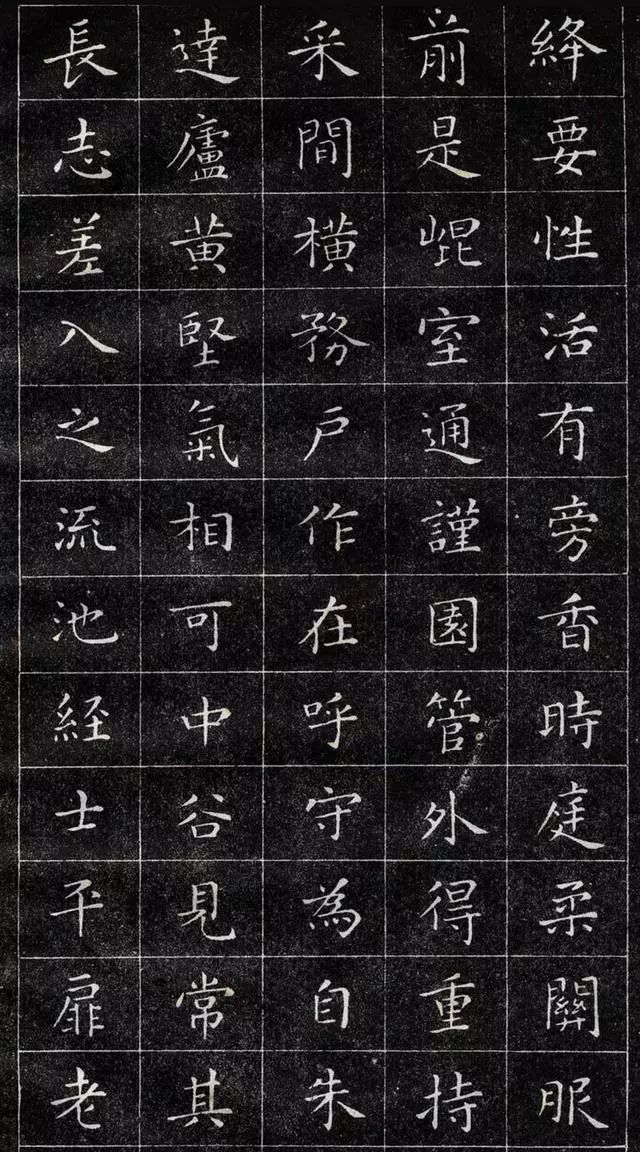 絳要性活有旁香時庭柔關服
前是崐室通謹園管外得重持
采間横務户作在呼守為自朱
達廬黄堅氣相可中谷見常其
長志差入之流池經士平扉老